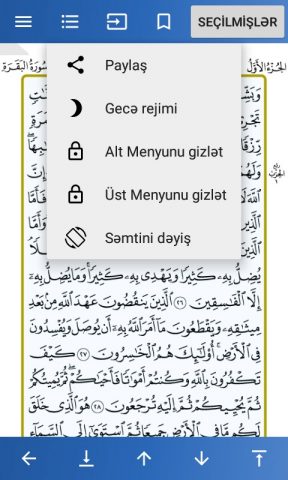 SEÇİLMİŞLƏR
سُورَةُ البَقَرَةِ
الجُزْءُ الأَوَّلُ
Paylaş
Gecə rejimi
Alt Menyunu gizlət
Üst Menyunu gizlət
Səmtini dəyiş
يُضِلُّ بِهِۦ كَثِيرًا وَيَهْدِي بِهِۦ كَثِيرًا ۚ وَمَا يُضِلُّ بِهِۦٓ
إِلَّا ٱلْفَٰسِقِينَ ٢٦ ٱلَّذِينَ يَنقُضُونَ عَهْدَ ٱللَّهِ مِنۢ بَعْدِ
مِيثَٰقِهِۦ وَيَقْطَعُونَ مَآ أَمَرَ ٱللَّهُ بِهِۦٓ أَن يُوصَلَ وَيُفْسِدُونَ
فِي ٱلْأَرْضِ ۚ أُو۟لَٰٓئِكَ هُمُ ٱلْخَٰسِرُونَ ٢٧ كَيْفَ
تَكْفُرُونَ بِٱللَّهِ وَكُنتُمْ أَمْوَٰتًا فَأَحْيَٰكُمْ ۖ ثُمَّ يُمِيتُكُمْ
ثُمَّ يُحْيِيكُمْ ثُمَّ إِلَيْهِ تُرْجَعُونَ ٢٨ هُوَ ٱلَّذِي خَلَقَ
لَكُم مَّا فِي ٱلْأَرْضِ جَمِيعًا ثُمَّ ٱسْتَوَىٰٓ إِلَى ٱلسَّمَآءِ